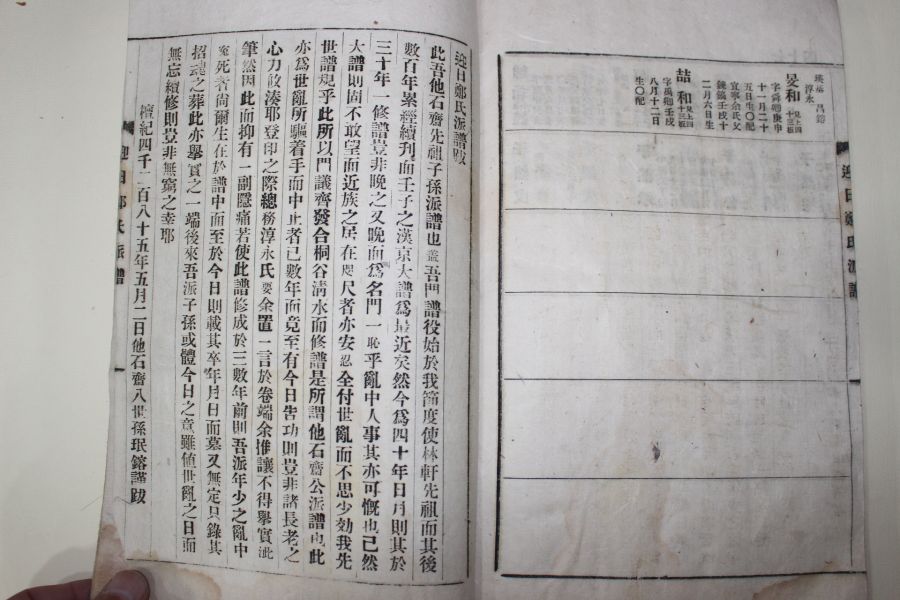 迎日鄭氏派譜
瑛基 昌鎔
淳永
旻和 見上四十三板
字舜卿庚申
十一月二十
五日生〇配
宜寧余氏父
鍊鎬壬戌十
二月六日生
喆和 見上四十三板
字禹卿壬戌
八月十二日
生〇配
迎日鄭氏派譜跋
此吾他石齋先祖子孫派譜也蓋吾門譜役始於我節度使林軒先祖而其後
數百年累經續刊而壬子之漢京大譜爲最近矣然今爲四十年日月則其於
三十年一修譜豈非晚之又晚而爲名門一恥乎亂中人事其亦可慨也已然
大譜則固不敢望而近族之居在咫尺者亦安忍全付世亂而不思少効我先
世譜規乎此所以門議齊發合桐谷淸水而修譜是所謂他石齋公派譜也此
亦爲世亂所驅着手而中止者已數年而竟至有今日告功則豈非諸長老之
心力攸湊耶登印之際總務淳永氏要余置一言於卷端余推讓不得擧實泚
筆然因此而抑有一副隱痛若使此譜修成於三數年前則吾派年少之亂中
寃死者尙爾生在於譜中而至於今日則載其卒年月日而墓又無定只錄其
招魂之葬此亦擧實之一端後來吾派子孫或體今日之意雖値世亂之日而
無忘續修則豈非無窮之幸耶
檀紀四千二百八十五年五月二日他石齋八世孫珉鎔謹跋
迎日鄭氏派譜